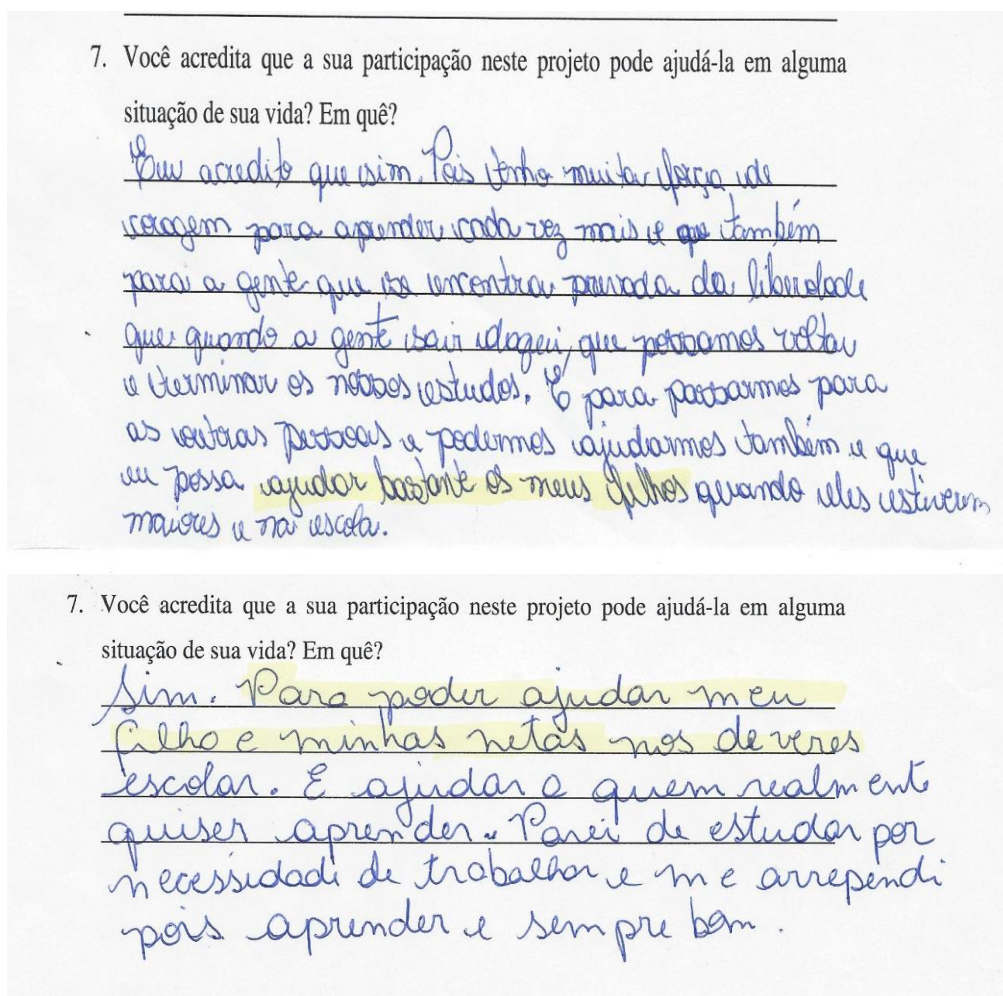 7. Você acredita que a sua participação neste projeto pode ajudá-la em alguma
situação de sua vida? Em quê?
Eu acredito que sim. Pois tenho muita força de
coragem para aprender cada vez mais e que também
para a gente que se encontra privada da liberdade
que quando a gente sair daqui, que possamos voltar
e terminar os nossos estudos. E para passarmos para
as outras pessoas e podermos ajudarmos também e que
eu possa ajudar bastante os meus filhos quando eles estiverem
maiores e na escola.
7. Você acredita que a sua participação neste projeto pode ajudá-la em alguma
situação de sua vida? Em quê?
Sim. Para poder ajudar meu
filho e minhas netas nos deveres
escolar. E ajudar a quem realmente
quiser aprender. Parei de estudar por
necessidade de trabalhar e me arrependi
pois aprender e sempre bom.